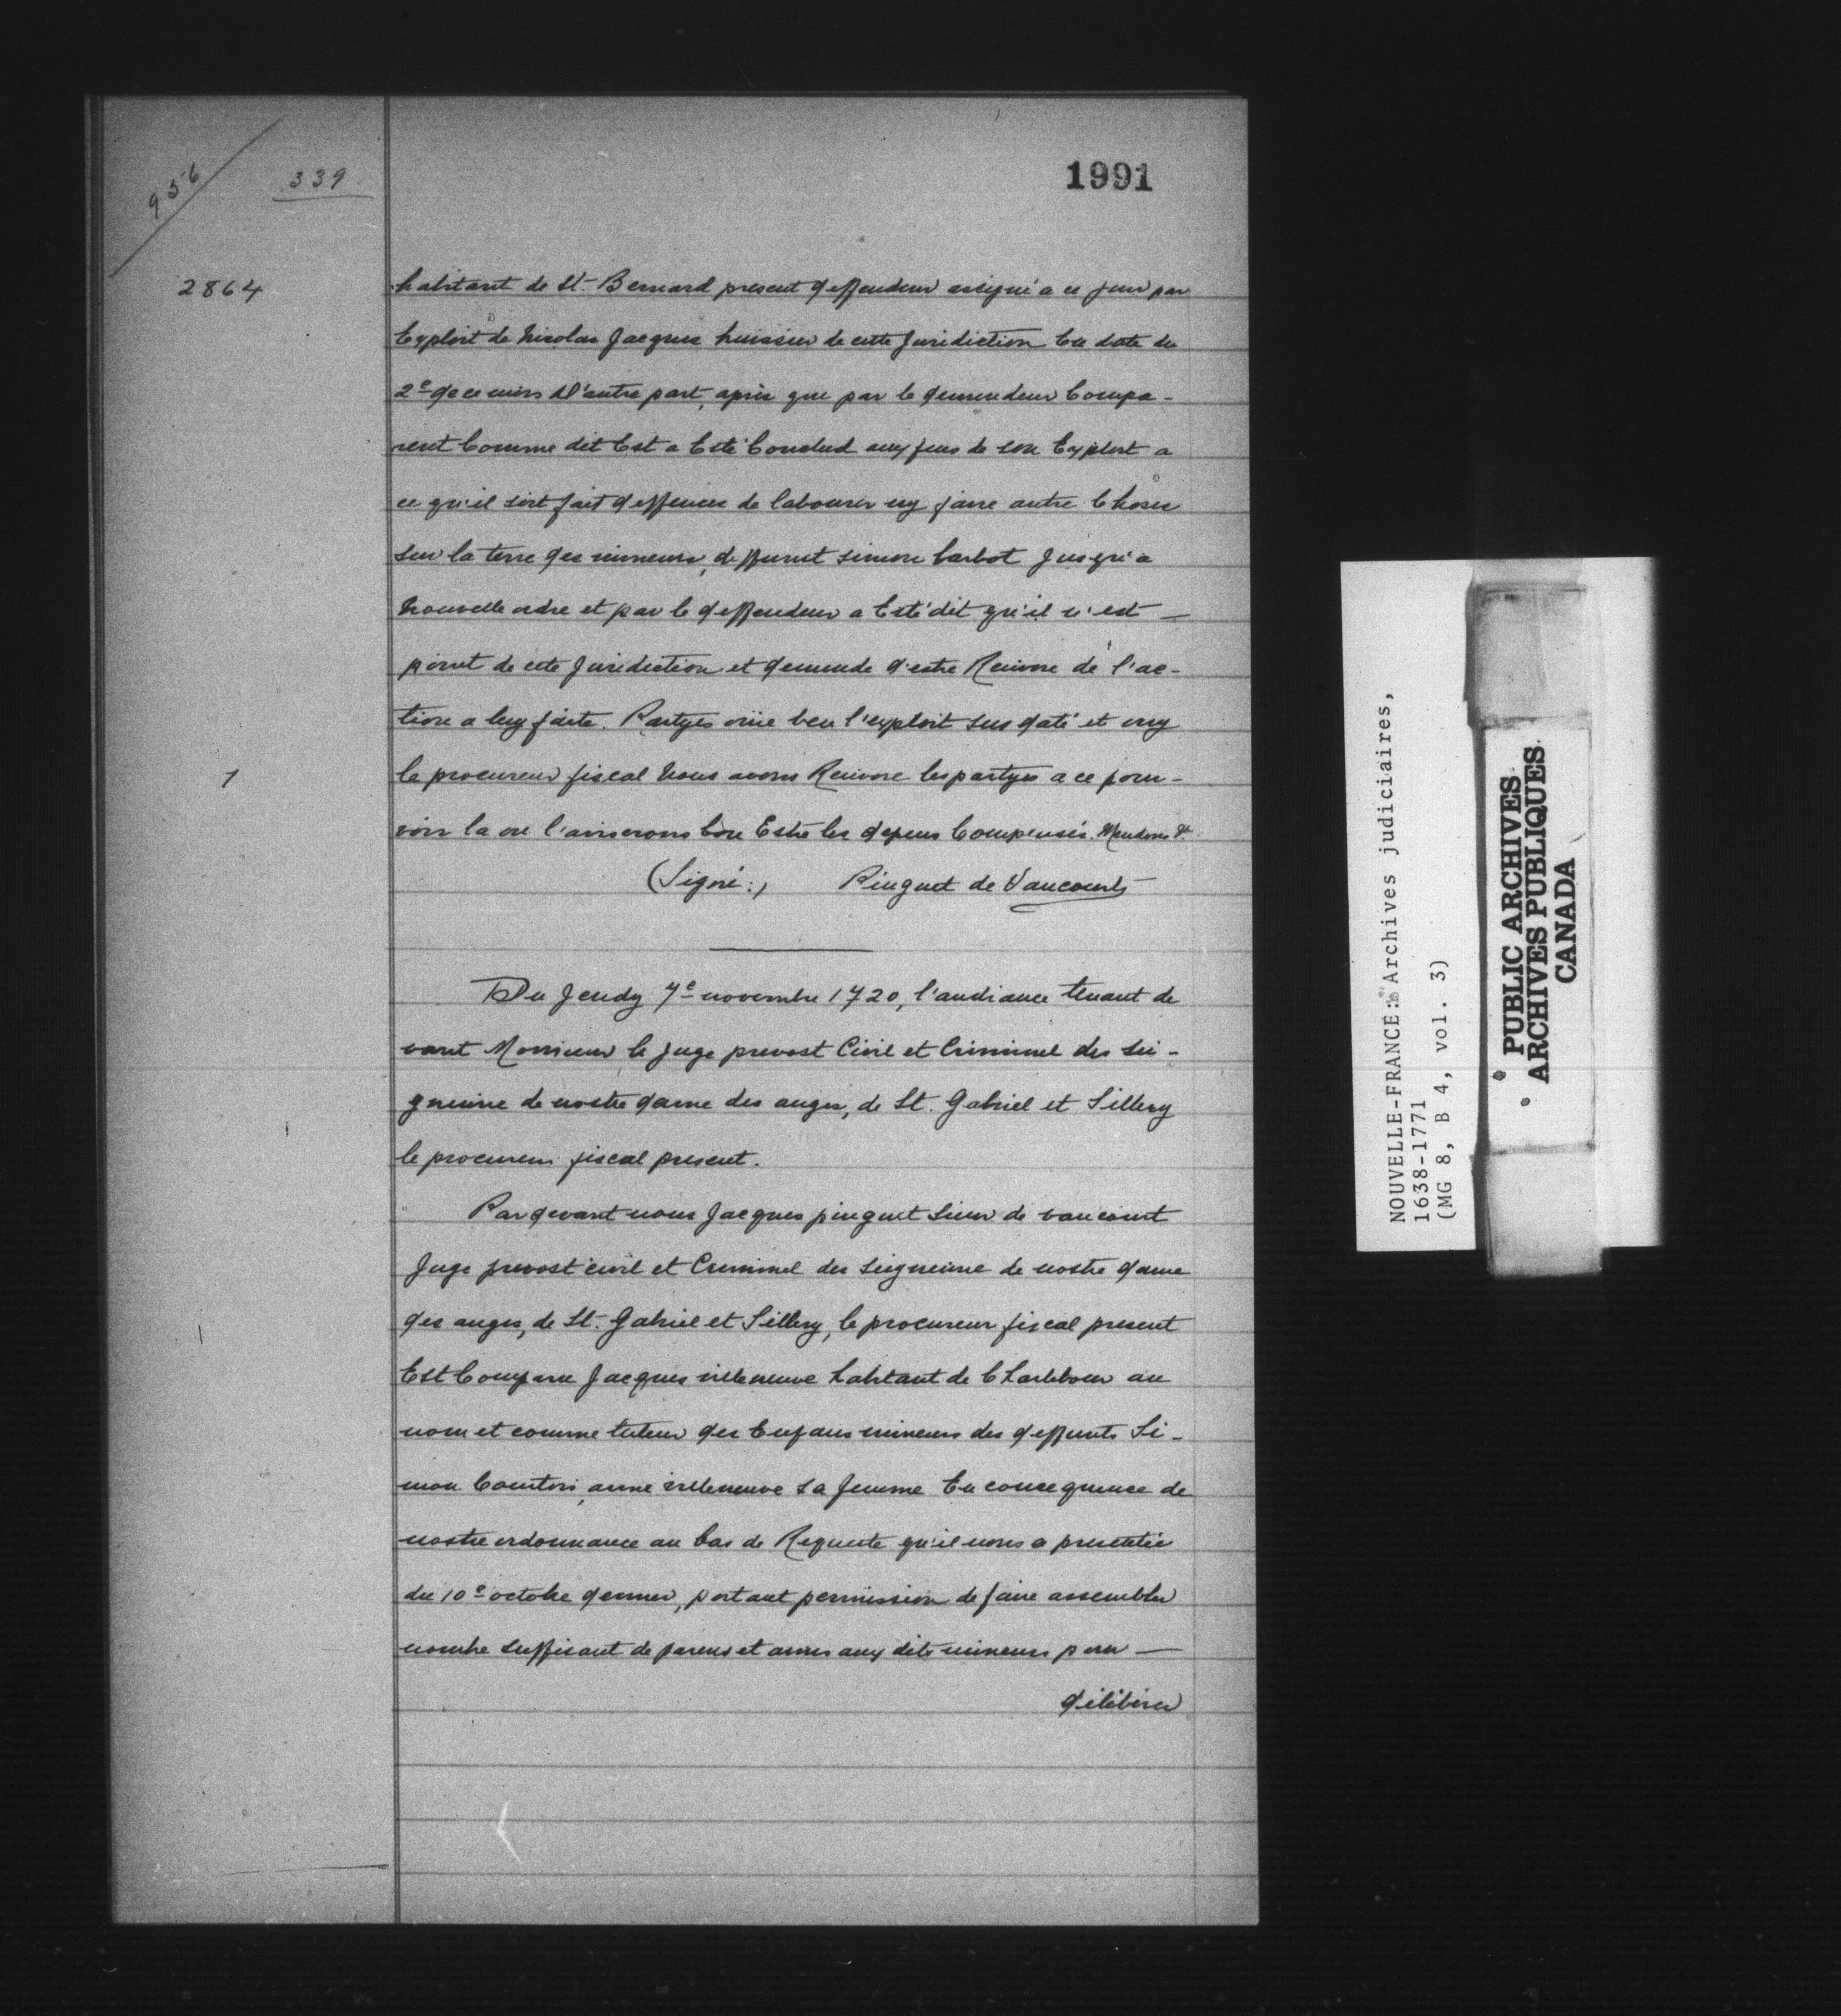 956
339
1991
2864
habitant de St. Bernard present deffendeur assigné a ce jour par
Exploit de Nicolas Jacques huissier de cette Juridiction En date du
2e de ce mois D'autre part, après que par le demendeur Compa-
rent Comme dit Est a Esté Conclud aux fins de son Exploit a
ce qu'il soit fait deffences de labourer ny faire autre Choses
sur la terre des mineurs, deffunt simon barbot Jusqu'a
Nouvelle ordre et par le deffendeur a Esté dit qu'il n'est —
point de cete Jurediction et demende d'estre Renvoie de l'ac-
tion a luy faite. Partyes ouïe veu l'exploit sus daté et ouy
1
le procureur fiscal Nous avons Renvoie les partyes a ce pour-
voir la ou l'aviserons bon Estre les depens Compensés. Mendons &
(Signé:) Pinguet de Vaucourts
Du Jeudy 7e novembre 1720, l'audiance tenant de
vant Monsieur le juge prevost Civil et Criminel des Sei-
gneurie de nostre dame des anges, de St. Gabriel et Sillery
le procureur fiscal present.
Par devant nous Jacques pinguet Sieur de vaucourt
Juge prevost civil et Criminel des Seigneurie de nostre dame
des anges, de St. Gabriel et Sillery, le procureur fiscal present
Est Comparu Jacques villeneuve habitant de Charlebour au
nom et comme tuteur des Enfans mineurs des deffunts Si-
mon Courtois, anne villeneuve Sa femme En consequence de
nostre ordonnance au bas de Requeste qu'il nous a presentée
du 10e octobre dernier, portant permission de faire assembler
nombre suffisant de parens et amis aux dits mineurs pour —
délibérer
NOUVELLE-FRANCE: Archives judiciaires,
1638-1771
(MG 8, B 4, vol. 3)
PUBLIC ARCHIVES
ARCHIVES PUBLIQUES
CANADA